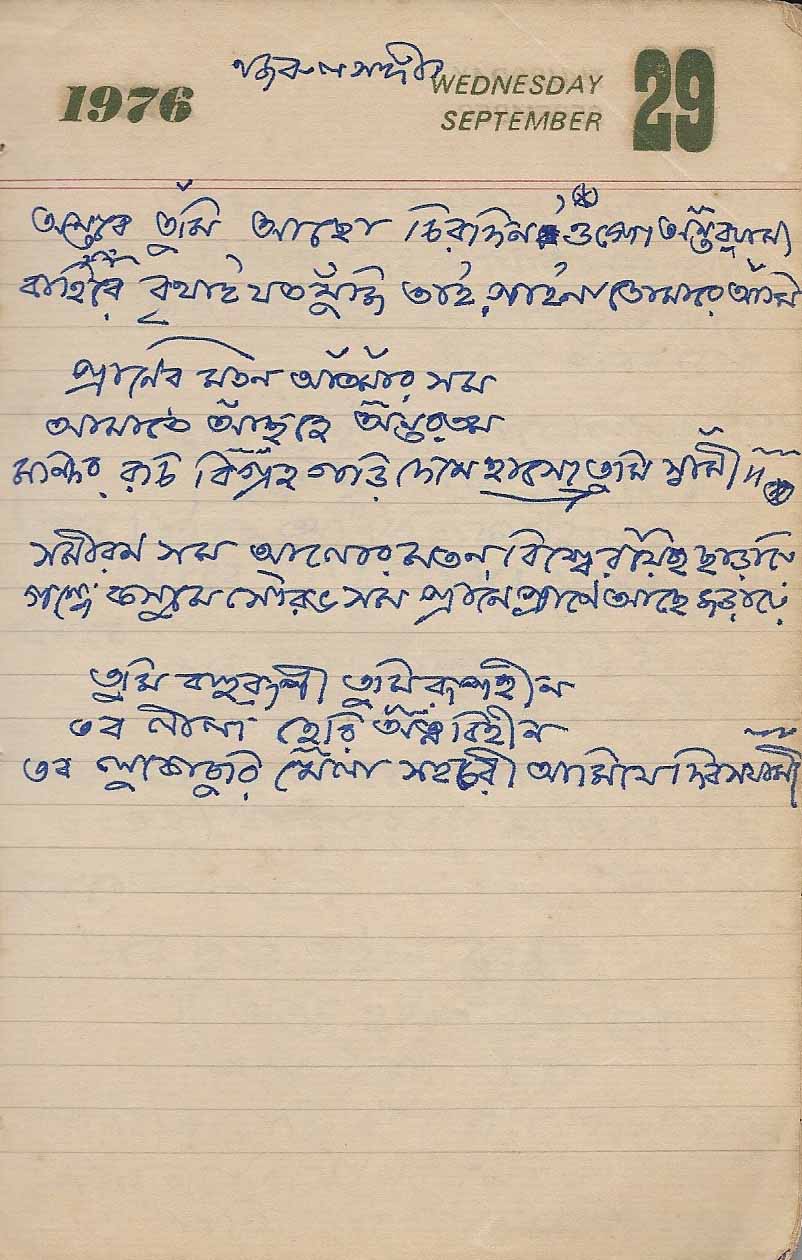 নজরুল গীতি
1976 WEDNESDAY 29
SEPTEMBER
অন্তরে তুমি আছো চিরদিন ওগো অন্তরযামী
বাহিরে বৃথাই যত খুঁজি তাই পাইনা তোমারে আমি
প্রাণের মতন আত্মার সম
আমাতে আছ হে অন্তরতম
মন্দির রচি বিগ্রহ গড়ি দেখে হাসো তুমি স্বামী
সমীরণ সম আলোর মতন বিশ্বে রয়েছ ছড়ায়ে
গন্ধে কুসুমে সৌরভ সম প্রাণে প্রাণে আছ জড়ায়ে
তুমি বহুরূপী তুমি রূপহীন
তব লীলা হেরি অন্তবিহীন
তব লুকোচুরি খেলা সহচরী আমি যে দিবসযামী